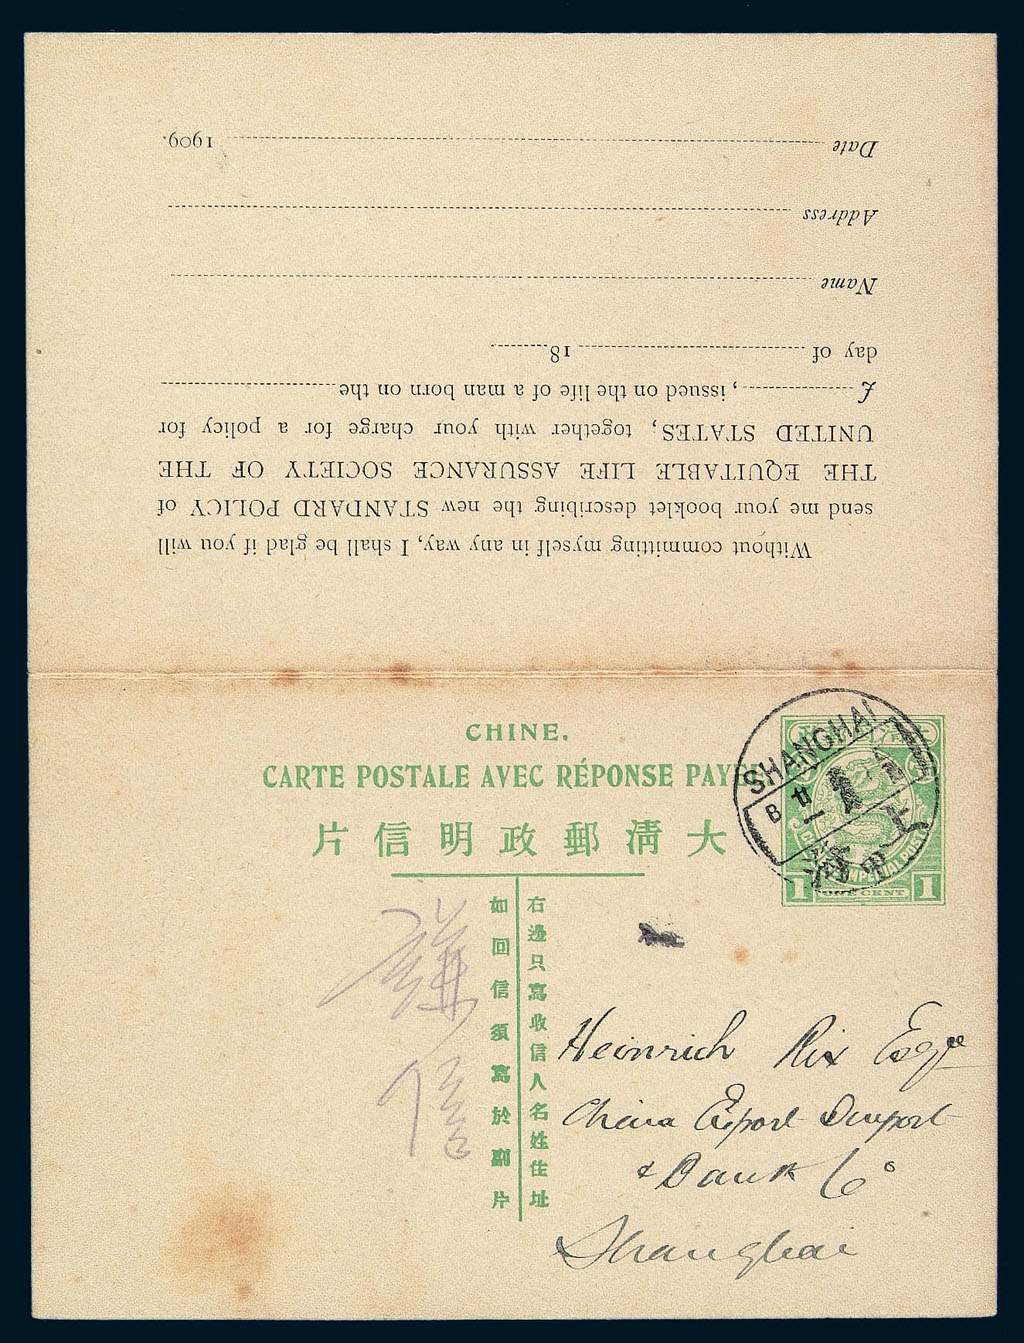 Date 1909.
Address
Name
Without committing myself in any way, I shall be glad if you will
send me your booklet describing the new STANDARD POLICY of
THE EQUITABLE LIFE ASSURANCE SOCIETY OF THE
UNITED STATES; together with your charge for a policy for
£ , issued on the life of a man born on the
day of 18
CHINE.
CARTE POSTALE AVEC RÉPONSE PAYÉE
大清郵政明信片
右邊只寫收信人名姓住址
如回信須寫於副片
SHANGHAI
B
廿一
上
IMPERIAL POST
1 ONE CENT 1
謙信
Heinrich Rix Esqre
China Export Import
& Bank Co
Shanghai